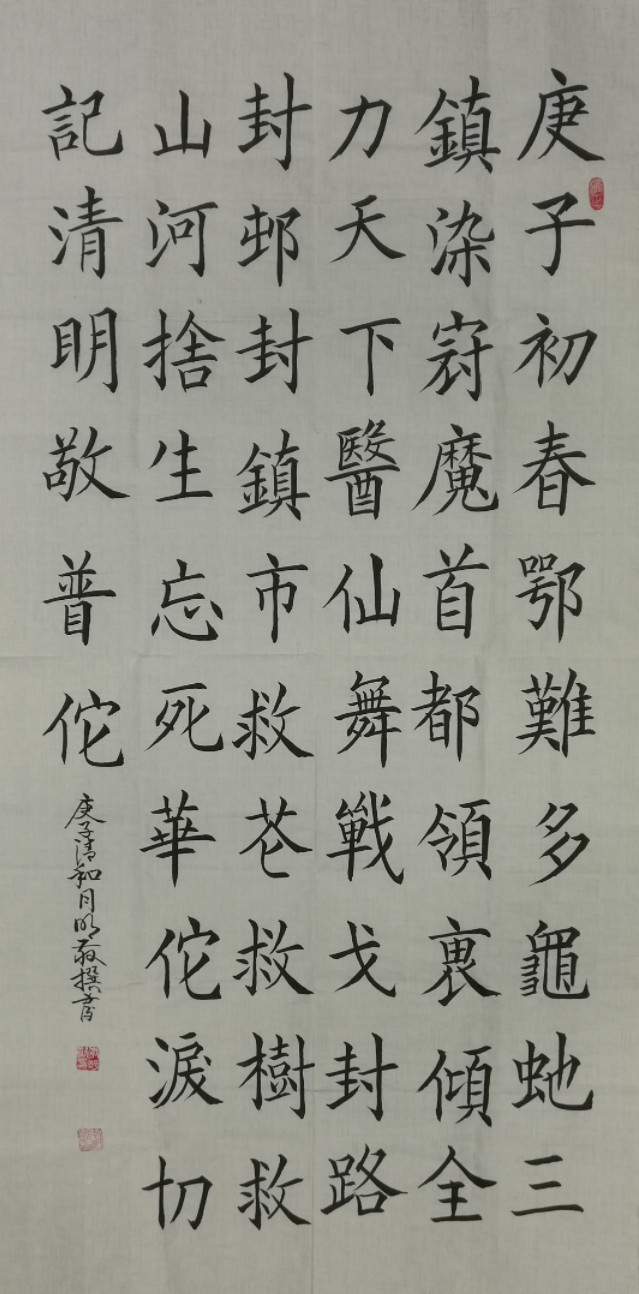 庚子初春鄂難多龜虵三
鎮染冠魔首都領衷傾全
力天下醫仙舞戰戈封路
封邨封鎮市救苍救樹救
山河捨生忘死華佗淚切
記清明敬普佗
庚子清和月明敬撰書